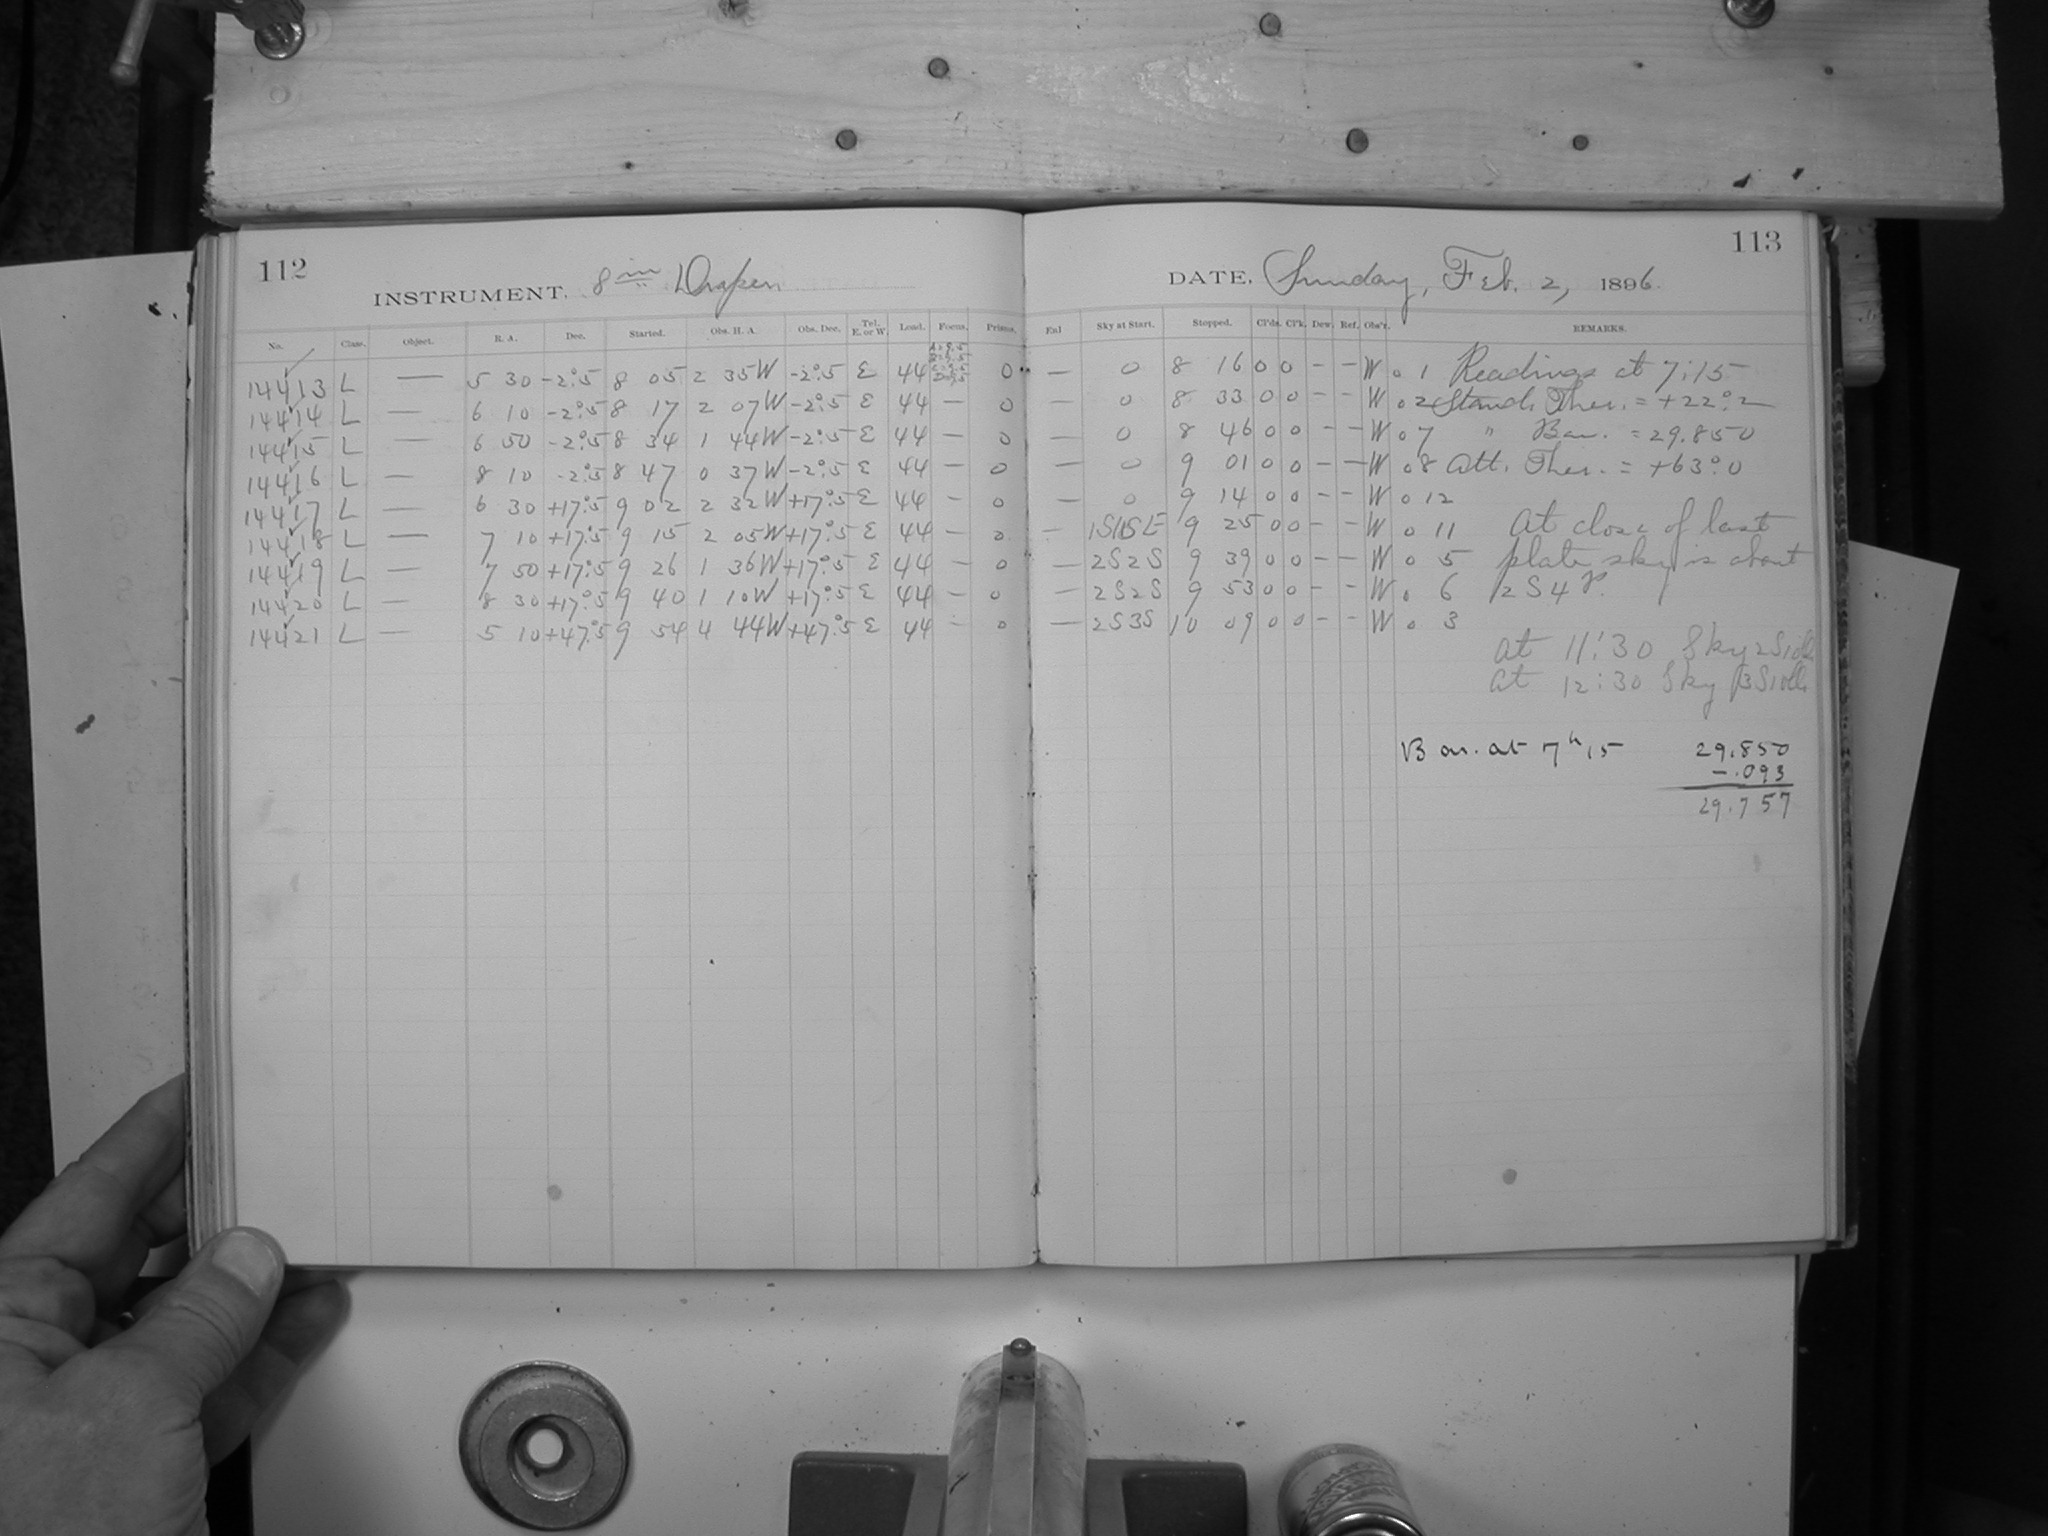 112
INSTRUMENT. 8 in Draper
No. Class. Object. R. A. Dec. Started. Obs. H. A. Obs. Dec. Tel. E. or W. Load. Focus. Prisms.
14413 L — 5 30 -2°.5 8 05 2 35W -2°.5 E 44 0
14414 L — 6 10 -2°.5 8 17 2 07W -2°.5 E 44 — 0
14415 L — 6 50 -2°.5 8 34 1 44W -2°.5 E 44 — 0
14416 L — 8 10 -2°.5 8 47 0 37W -2°.5 E 44 — 0
14417 L — 6 30 +17°.5 9 02 2 32W +17°.5 E 44 — 0
14418 L — 7 10 +17°.5 9 15 2 05W +17°.5 E 44 — 0
14419 L — 7 50 +17°.5 9 26 1 36W +17°.5 E 44 — 0
14420 L — 8 30 +17°.5 9 40 1 10W +17°.5 E 44 — 0
14421 L — 5 10 +47°.5 9 54 4 44W +47°.5 E 44 — 0
113
DATE. Sunday, Feb. 2, 1896.
Sky at Start. Stopped. Cl'ds. Cl'k. Dew. Ref. Obs'r. REMARKS.
— 0 8 16 0 0 - - W 0 1 Readings at 7:15
— 0 8 33 0 0 - - W 0 2 Stand. Ther. = +22°.2
— 0 8 46 0 0 - - W 0 7 " Bar. = 29.850
— 0 9 01 0 0 - - W 0 8 Att. Ther. = +63°.0
— 0 9 14 0 0 - - W 0 12
— 9 25 0 0 - - W 0 11 At close of last
— 2S2S 9 39 0 0 - - W 0 5 plate sky is about
— 2S2S 9 53 0 0 - - W 0 6 2S4
— 2S3S 10 09 0 0 - - W 0 3
at 11:30 Sky
at 12:30 Sky
Bar. at 7h 15 29.850
-.093
29.757